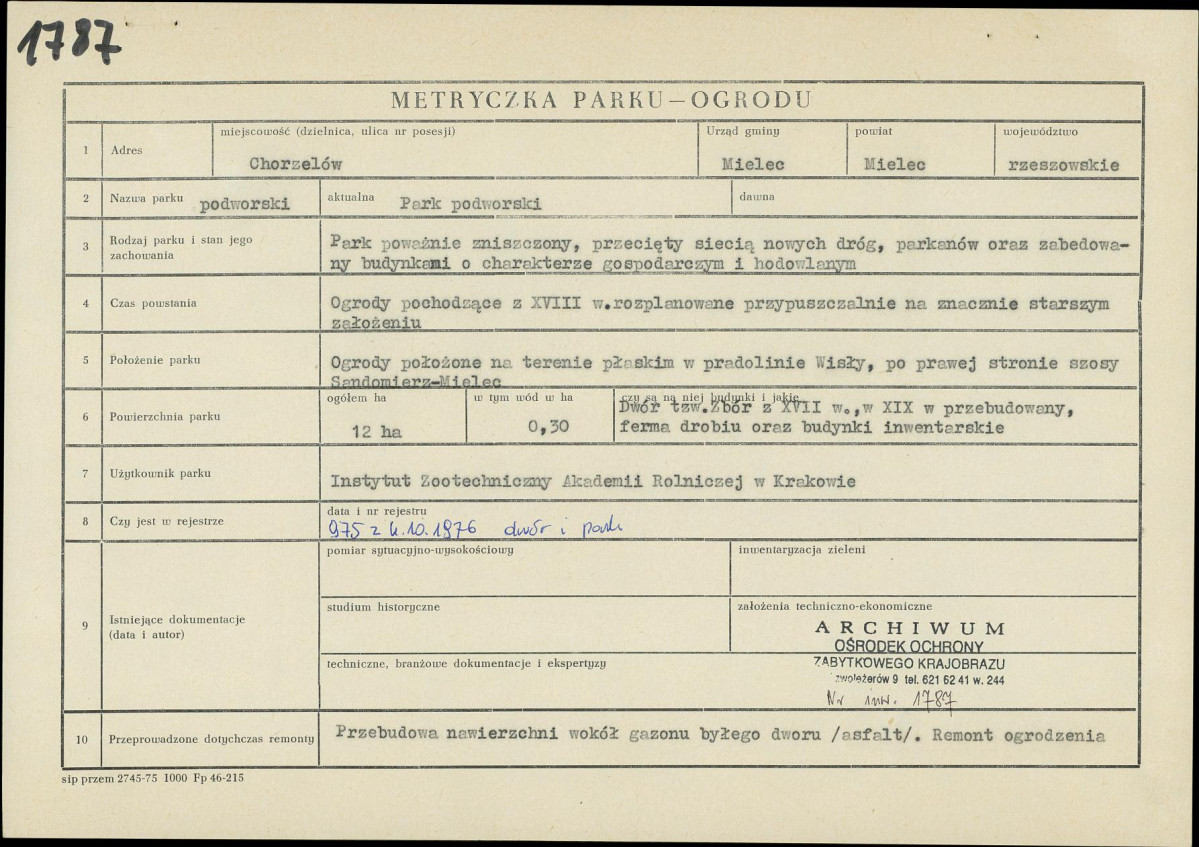 1787
METRYCZKA PARKU — OGRODU
1 Adres
miejscowość (dzielnica, ulica nr posesji)
Chorzelów
Urząd gminy
Mielec
powiat
Mielec
województwo
rzeszowskie
2 Nazwa parku podworski
aktualna Park podworski
dawna
3 Rodzaj parku i stan jego
zachowania
Park poważnie zniszczony, przecięty siecią nowych dróg, parkanów oraz zabedowa-
ny budynkami o charakterze gospodarczym i hodowlanym
4 Czas powstania
Ogrody pochodzące z XVIII w.rozplanowane przypuszczalnie na znacznie starszym
założeniu
5 Położenie parku
Ogrody położone na terenie płaskim w pradolinie Wisły, po prawej stronie szosy
Sandomierz-Mielec
6 Powierzchnia parku
ogółem ha
12 ha
w tym wód w ha
0,30
czy są na niej budynki i jakie
Dwór tzw.Zbór z XVII w.,w XIX w przebudowany,
ferma drobiu oraz budynki inwentarskie
7 Użytkownik parku
Instytut Zootechniczny Akademii Rolniczej w Krakowie
8 Czy jest w rejestrze
data i nr rejestru
975 z 4.10.1976 dwór i park
9 Istniejące dokumentacje
(data i autor)
pomiar sytuacyjno-wysokościowy
inwentaryzacja zieleni
studium historyczne
założenia techniczno-ekonomiczne
techniczne, branżowe dokumentacje i ekspertyzy
ARCHIWUM
OŚRODEK OCHRONY
ZABYTKOWEGO KRAJOBRAZU
9 tel. 621 62 41 w. 244
Nr inw. 1787
10 Przeprowadzone dotychczas remonty
Przebudowa nawierzchni wokół gazonu byłego dworu /asfalt/. Remont ogrodzenia
sip przem 2745-75 1000 Fp 46-215